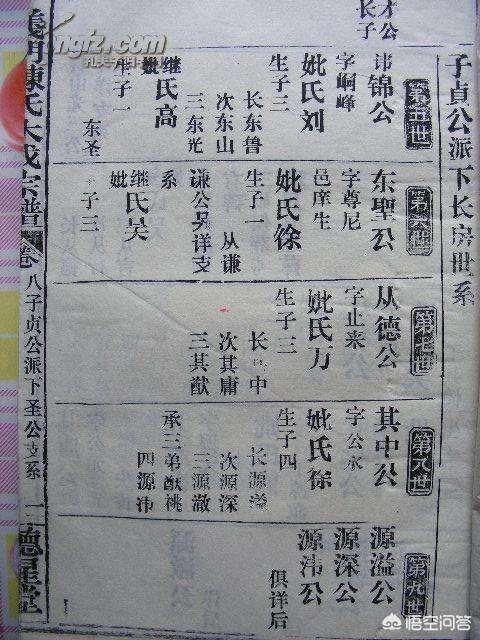 子貞公派下长房世系
才公
长子
第五世
讳锦公
字峒峰
妣氏刘
生子三
长东鲁
次东山
三东光
继妣氏高
生子一
东圣
东聖公
字尊尼
邑庠生
妣氏徐
生子一
从谦
谦公另详支系
继妣氏吴
子三
第七世
从德公
字止来
妣氏万
生子三
长其中
次其庸
三其猷
第八世
其中公
字公永
妣氏徐
生子四
长源溢
次源深
三源澈
承三弟猷祧
四源沛
第九世
源溢公
源深公
源沛公
俱详后
義門陳氏大成宗譜
卷
八子貞公派下圣公支系
一
德星堂
ngiz.com
悟空问答